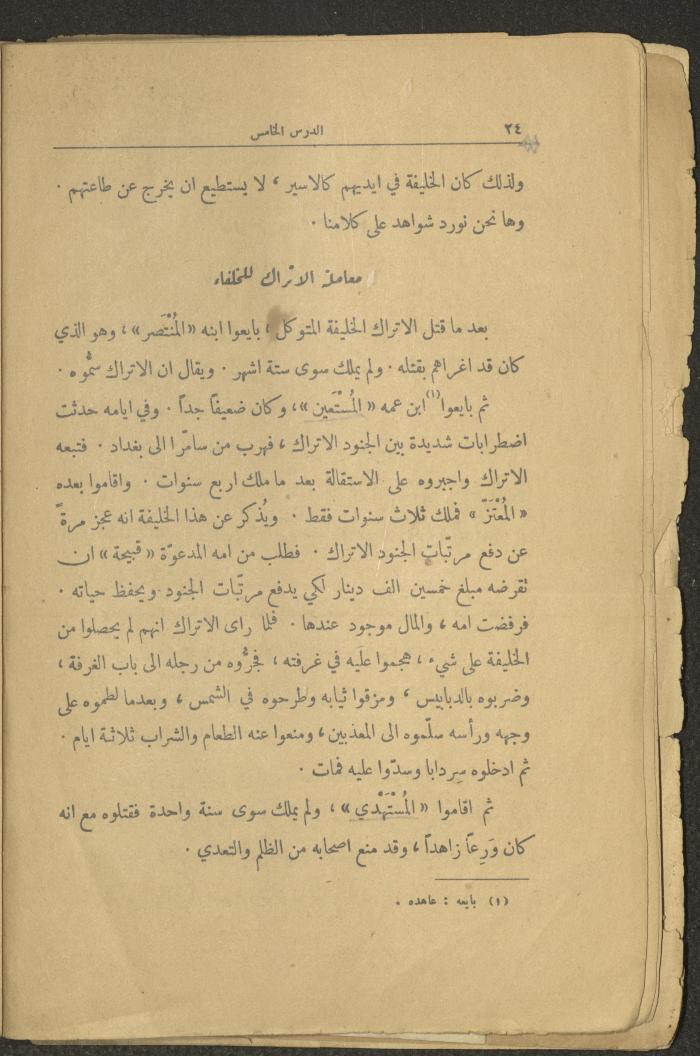 ٢٤
الدرس الخامس
ولذلك كان الخليفة في ايديهم كالاسير ، لا يستطيع ان يخرج عن طاعتهم .
وها نحن نورد شواهد على كلامنا .
معاملة الاتراك للخلفاء
بعد ما قتل الاتراك الخليفة المتوكل ، بايعوا ابنه «المُنْتَصر» ، وهو الذي
كان قد اغراهم بقتله . ولم يملك سوى ستة اشهر . ويقال ان الاتراك سمُّوه .
ثم بايعوا(١) ابن عمه «المُسْتَعين» ، وكان ضعيفاً جداً . وفي ايامه حدثت
اضطرابات شديدة بين الجنود الاتراك ، فهرب من سامرّا الى بغداد . فتبعه
الاتراك واجبروه على الاستقالة بعد ما ملك اربع سنوات . واقاموا بعده
«المُعْتَزّ» فملك ثلاث سنوات فقط . ويُذكر عن هذا الخليفة انه عجز مرةً
عن دفع مرتّبات الجنود الاتراك . فطلب من امه المدعوّة «قبيحة» ان
تقرضه مبلغ خمسين الف دينار لكي يدفع مرتّبات الجنود ويحفظ حياته .
فرفضت امه ، والمال موجود عندها . فلما راى الاتراك انهم لم يحصلوا من
الخليفة على شيء ، هجموا عليه في غرفته ، فجرُّوه من رجله الى باب الغرفة ،
وضربوه بالدبابيس ، ومزقوا ثيابه وطرحوه في الشمس ، وبعدما لطموه على
وجهه ورأسه سلّموه الى المعذبين ، ومنعوا عنه الطعام والشراب ثلاثة ايام .
ثم ادخلوه سردابا وسدّوا عليه فمات .
ثم اقاموا «المُسْتَهْدي» ، ولم يملك سوى سنة واحدة فقتلوه مع انه
كان وَرِعاً زاهداً ، وقد منع اصحابه من الظلم والتعدي .
(١) بايعه : عاهده .